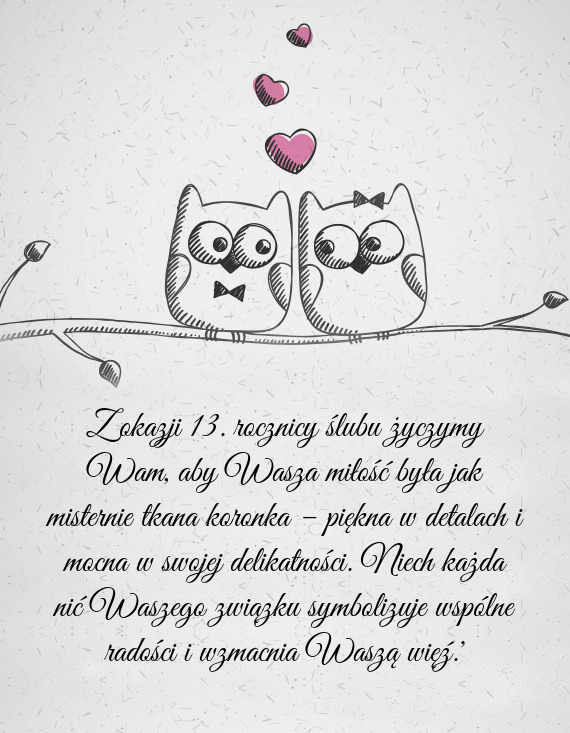 Z okazji 13. rocznicy ślubu życzymy
Wam, aby Wasza miłość była jak
misternie tkana koronka – piękna w detalach i
mocna w swojej delikatności. Niech każda
nić Waszego związku symbolizuje wspólne
radości i wzmacnia Waszą więź.’